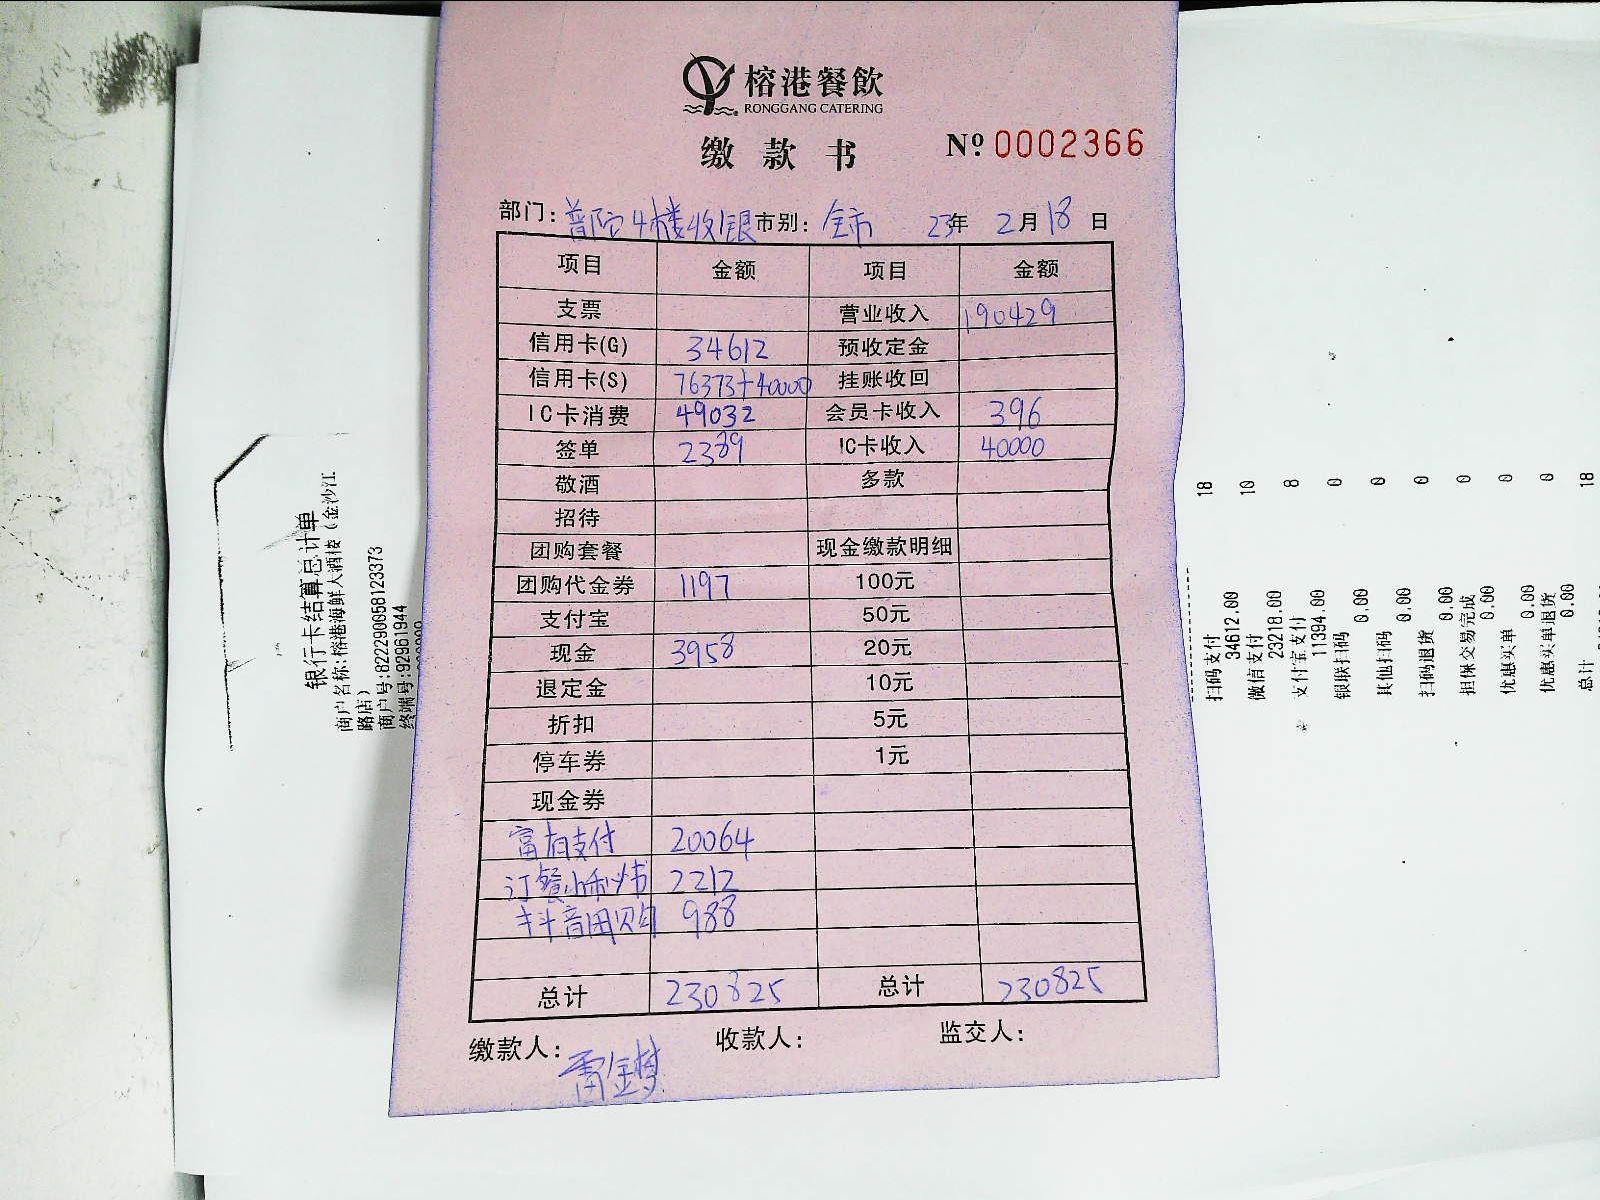 榕港餐飲
RONGGANG CATERING
缴款书 Nº 0002366
部门: 普陀4楼收银 市别: 全市 23年 2月18日
项目 金额 项目 金额
支票 营业收入 190429
信用卡(G) 34612 预收定金
信用卡(S) 76373+40000 挂账收回
IC卡消费 49032 会员卡收入 396
签单 2389 IC卡收入 40000
敬酒 多款
招待
团购套餐 现金缴款明细
团购代金券 1197 100元
支付宝 50元
现金 3958 20元
退定金 10元
折扣 5元
停车券 1元
现金券
富有支付 20064
订餐小秘书 2212
抖音团购 988
总计 230825 总计 230825
缴款人: 雷金梦 收款人: 监交人:
银行卡结算总计单
商户名称:榕港海鲜大酒楼(金沙江
路店)
商户号:822290058123373
终端号:92961944
扫码支付 18
34612.00
微信支付 10
23218.00
支付宝支付 8
11394.00
银联扫码 0
0.00
其他扫码 0
0.00
扫码退货 0
0.00
担保交易完成 0
0.00
优惠买单 0
0.00
优惠买单退货 0
0.00
总计 18